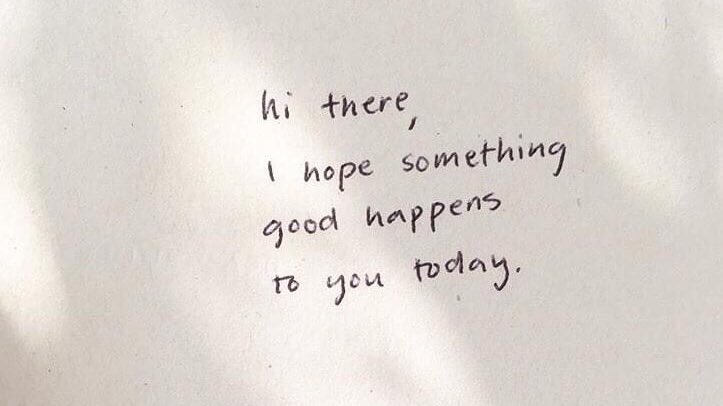 hi there,
I hope something
good happens
to you today.